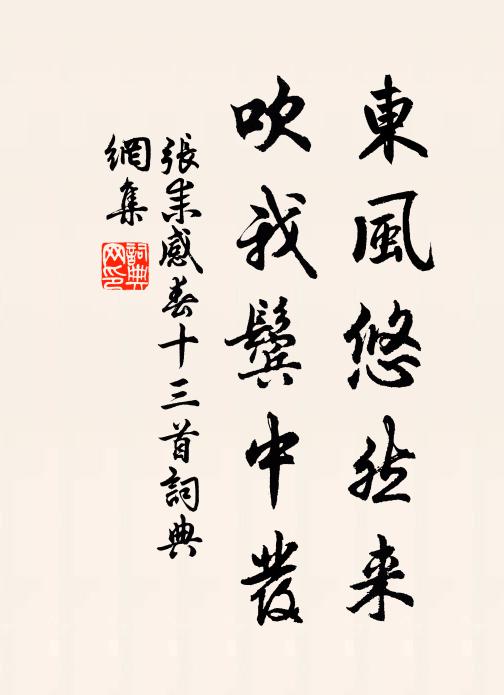 東風悠然来
吹我鬓中發
張耒感春十三首詞典
網集
詞典
网印